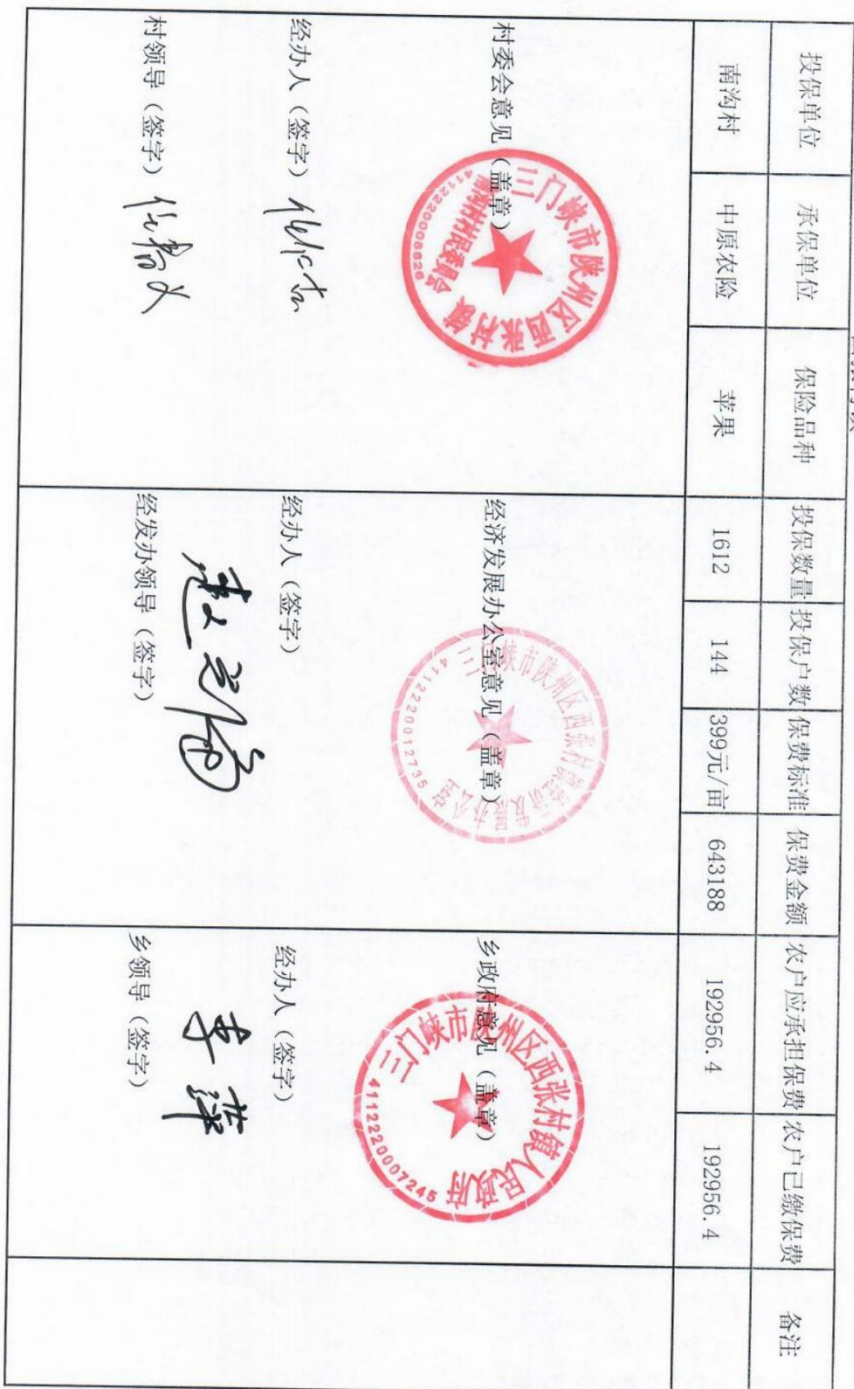 投保单位 承保单位 保险品种 投保数量 投保户数 保费标准 保费金额 农户应承担保费 农户已缴保费 备注
南沟村 中原农险 苹果 1612 144 399元/亩 643188 192956.4 192956.4
村委会意见（盖章）
三门峡市陕州区西张村镇
南沟村村民委员会
4112220008626
经办人（签字）
村领导（签字）
经济发展办公室意见（盖章）
三门峡市陕州区西张村镇经济发展办公室
4112220012735
经办人（签字）
经发办领导（签字）
乡政府意见（盖章）
三门峡市陕州区西张村镇人民政府
4112220007245
经办人（签字）
乡领导（签字）